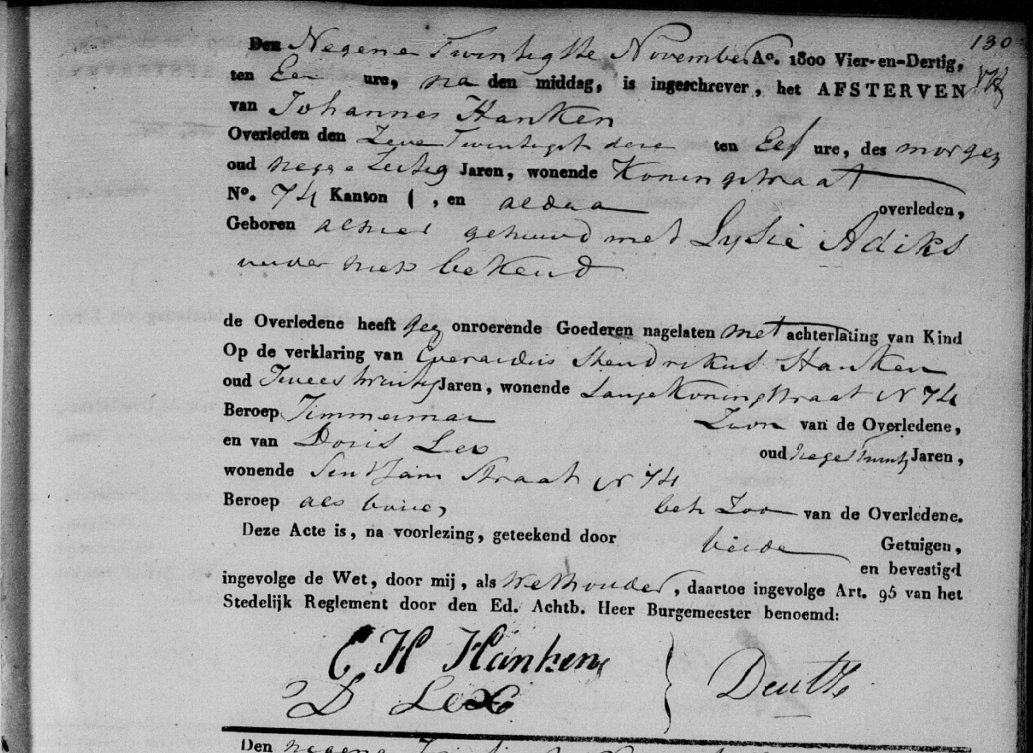 130
Den Negen en Twintigste November Ao. 1800 Vier-en-Dertig,
ten Een ure, na den middag, is ingeschrever, het AFSTERVEN
van Johannes Hanken
Overleden den Zeven Twintigst dezer ten Elf ure, des morgen
oud Jaren, wonende Koningstraat
No. 74 Kanton 1, en aldaar overleden,
Geboren alhier gehuwd met Lysie Adiks
verder niet bekend
de Overledene heeft geen onroerende Goederen nagelaten met achterlating van Kind
Op de verklaring van Everardus Hendrikus Hanken
oud Twee Twintig Jaren, wonende Lange Koningstraat N 74
Beroep Timmerman Zoon van de Overledene,
en van Doris Lex oud Negen Twintig Jaren,
wonende Sint Jans Straat N 74
Beroep als boven, beh Zoon van de Overledene.
Deze Acte is, na voorlezing, geteekend door beide Getuigen,
en bevestigd
ingevolge de Wet, door mij, als Wethouder, daartoe ingevolge Art. 95 van het
Stedelijk Reglement door den Ed. Achtb. Heer Burgemeester benoemd:
E H Hanken
D Lex
Den